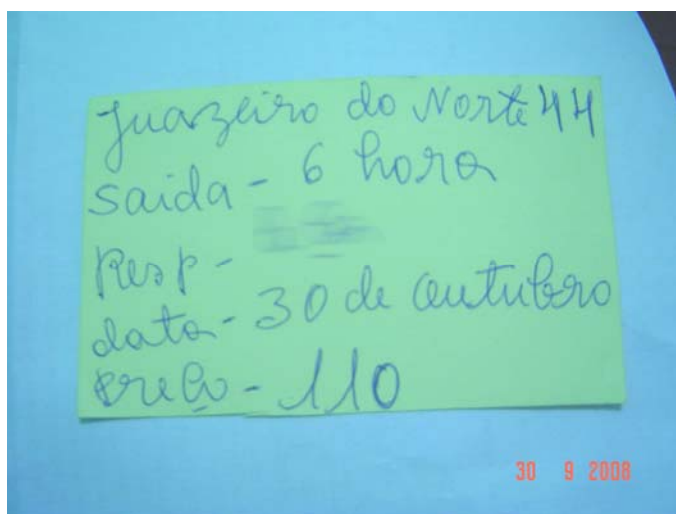 Juazeiro do Norte 44
Saida - 6 hora
Resp -
data - 30 de outubro
Preço - 110
30 9 2008